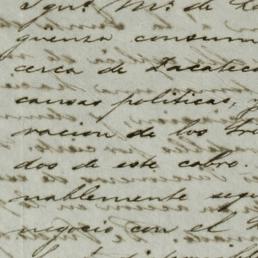 Ygn.º M.ª de La
güenza consum
cerca de Zacatec
causas politicas,
vacion de los tra
dos de este cabro.
nablemente segu
negocio con el